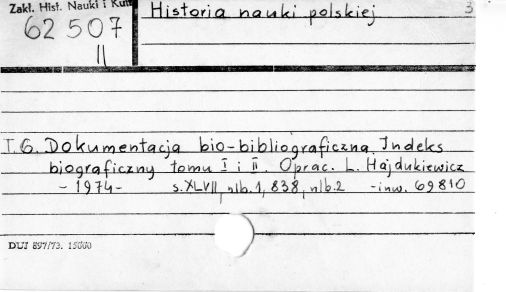 Zakł. Hist. Nauki i Kult
62 507
II
Historia nauki polskiej
3
T.6. Dokumentacja bio-bibliograficzna. Indeks
biograficzny tomu I i II. Oprac. L. Hajdukiewicz
- 1974 -   s. XLVII, nlb. 1, 838, nlb. 2   - inw. 69810
DUJ 897/73. 15000